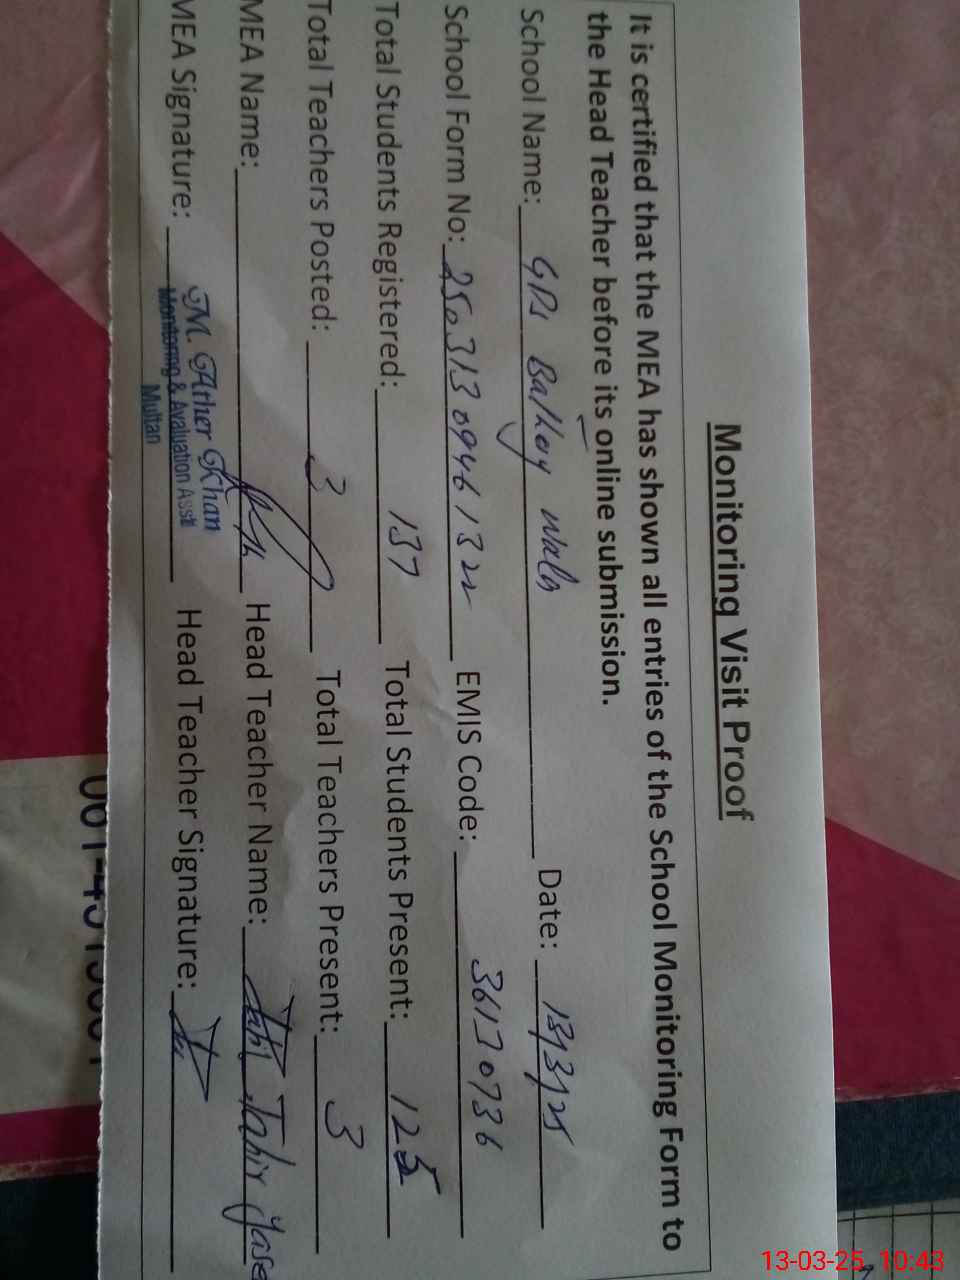 Monitoring Visit Proof
It is certified that the MEA has shown all entries of the School Monitoring Form to
the Head Teacher before its online submission.
School Name: GPS Date: 13/3/25
School Form No: 2503130946 1322 EMIS Code: 36130736
Total Students Registered: 137 Total Students Present: 125
Total Teachers Posted: 3 Total Teachers Present: 3
MEA Name: Head Teacher Name: Tahir
MEA Signature: Head Teacher Signature:
M. Ather Khan
Monitoring & Avaluation Asstt
Multan
13-03-25, 10:43